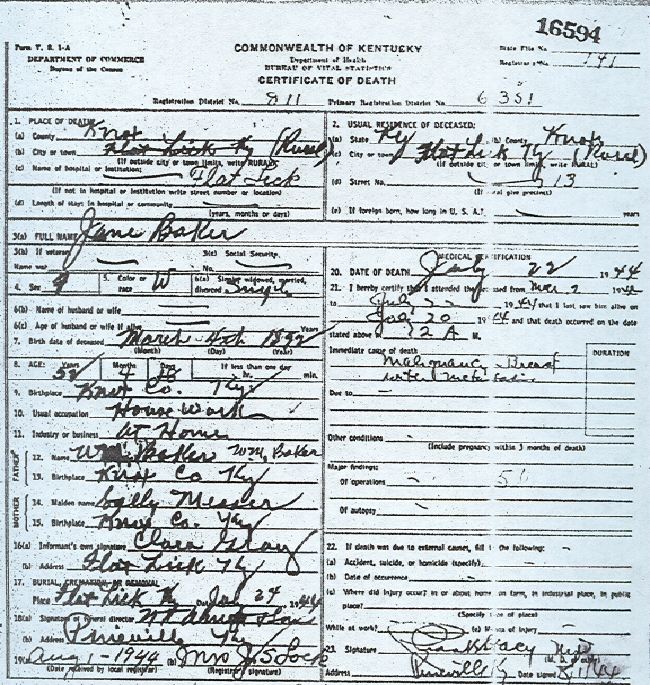 16594
Form V. S. 1-A
COMMONWEALTH OF KENTUCKY
State File No.
DEPARTMENT OF COMMERCE
Department of Health
Registrar's No. 141
Bureau of the Census
BUREAU OF VITAL STATISTICS
CERTIFICATE OF DEATH
Registration District No. 811 Primary Registration District No. 6351
1. PLACE OF DEATH:
(a) County Knox
(b) City or town Flat Lick Ky (Rural)
(If outside city or town limits, write RURAL)
(c) Name of hospital or institution:
Flat Lick
(If not in hospital or institution write street number or location)
(d) Length of stay: in hospital or community
(years, months or days)
2. USUAL RESIDENCE OF DECEASED:
(a) State Ky (b) County Knox
(c) City or town Flat Lick Ky (Rural)
(If outside city or town limits, write RURAL)
(d) Street No. 13
(If rural give precinct)
(e) If foreign born, how long in U. S. A.? years
3(a) FULL NAME Jane Baker
3(b) If veteran 3(c) Social Security
Name war No.
4. Sex 5. Color or race W 6(a) Single, widowed, married, divorced Single
6(b) Name of husband or wife
6(c) Age of husband or wife if alive Years
7. Birth date of deceased March 4th 1892
(Month) (Day) (Year)
8. AGE: Years 52 Months 4 Days 18 If less than one day
hr. min.
9. Birthplace Knox Co. Ky.
10. Usual occupation House Work
11. Industry or business At Home
FATHER
12. Name Wm. Baker Wm. Baker
13. Birthplace Knox Co Ky
MOTHER
14. Maiden name Sally Messer
15. Birthplace Knox Co. Ky
16(a) Informant's own signature Clara Gray
(b) Address Flat Lick Ky
17. BURIAL, CREMATION, OR REMOVAL
Place Flat Lick Ky Date 24 1944
18(a) Signature of funeral director
(b) Address Pineville Ky
19(a) Aug 1-1944 (b) Mrs J S Lock
(Date received by local registrar) (Registrar's signature)
MEDICAL CERTIFICATION
20. DATE OF DEATH July 22 1944
21. I hereby certify that I attended the deceased from 2 19
to July 22 1944 that I last saw him alive on
20 1944 and that death occurred on the date
stated above at 12 A M.
Immediate cause of death
DURATION
Malignancy - Breast
with Metastasis
Due to
Other conditions
(Include pregnancy within 3 months of death)
Major findings:
Of operations
Of autopsy
22. If death was due to external causes, fill in the following:
(a) Accident, suicide, or homicide (specify)
(b) Date of occurrence
(c) Where did injury occur? in or about home, on farm, in industrial place, in public
place?
(Specify type of place)
While at work? (e) Means of injury
23. Signature Stacy MD
(M. D. or other)
Address Pineville Ky Date signed 8/1/44